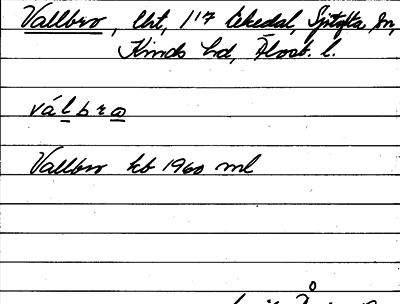 Vallbro, lht, 1¹⁷ Ekedal, Sjötofta sn,
Kinds hd, Älvsb. l.
válbrω
Vallbro kb 1960 ml